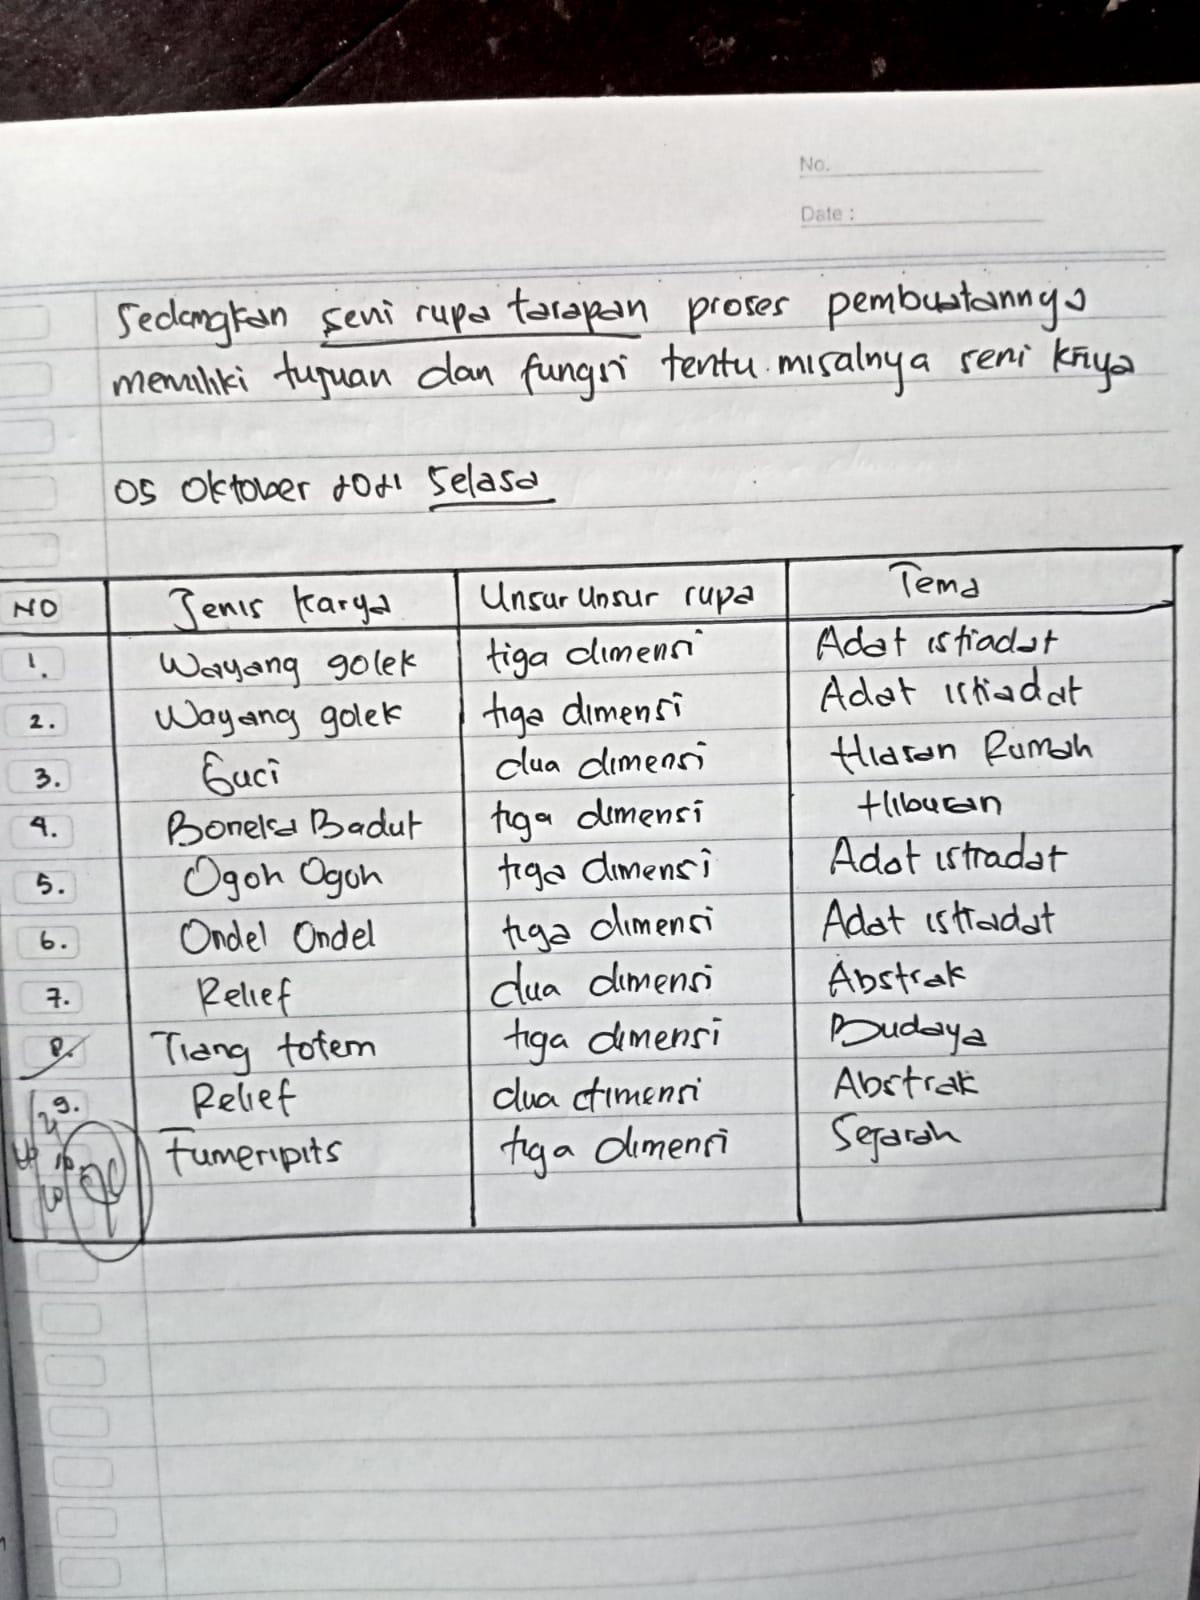 No.
Date :
Sedangkan seni rupa tarapan proses pembuatannya
memiliki tujuan dan fungsi tentu misalnya seni kriya
05 Oktober 2021 Selasa
NO Jenis Karya Unsur Unsur rupa Tema
1. Wayang golek tiga dimensi Adat istiadat
2. Wayang golek tiga dimensi Adat istiadat
3. Guci dua dimensi Hiasan Rumah
4. Boneka Badut tiga dimensi Hiburan
5. Ogoh Ogoh tiga dimensi Adat istiadat
6. Ondel Ondel tiga dimensi Adat istiadat
7. Relief dua dimensi Abstrak
8. Tiang totem tiga dimensi Budaya
9. Relief dua dimensi Abstrak
10 Fumeripits tiga dimensi Sejarah